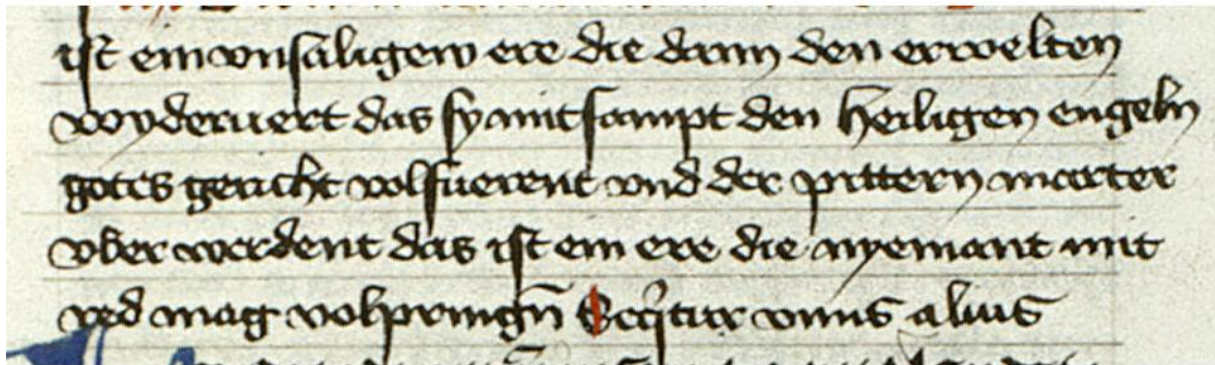 ist ein vnsaligew ere die dann den erwelten
wyderuert das sy mitsampt den heiligen engeln
gotes gericht volfuerent vnd der pittern marter
vber werdent das ist ein ere die nyemant mit
red mag volpringn̄ Seq̄tur vnus alius